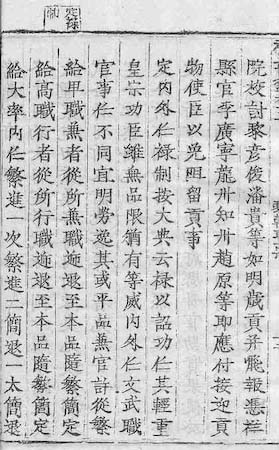 定祿制
院校討黎彦俊潘貴等如明歲貢并飛報憑祥
縣官李廣寧龍州知州趙原等即應付接迎貢
物使臣以免阻留貢事
定内外任祿制按大典云祿以詔功任其輕重
皇宗功臣雖無品限猶有等威内外任文武職
官事任不同宜明勞逸其或平品無官計從繁
給甲職無者從所無職遞退至本品隨繁簡定
給高職行者從所行職遞退至本品隨繁簡定
給大率内任繁進一次繁進二簡退一太簡退